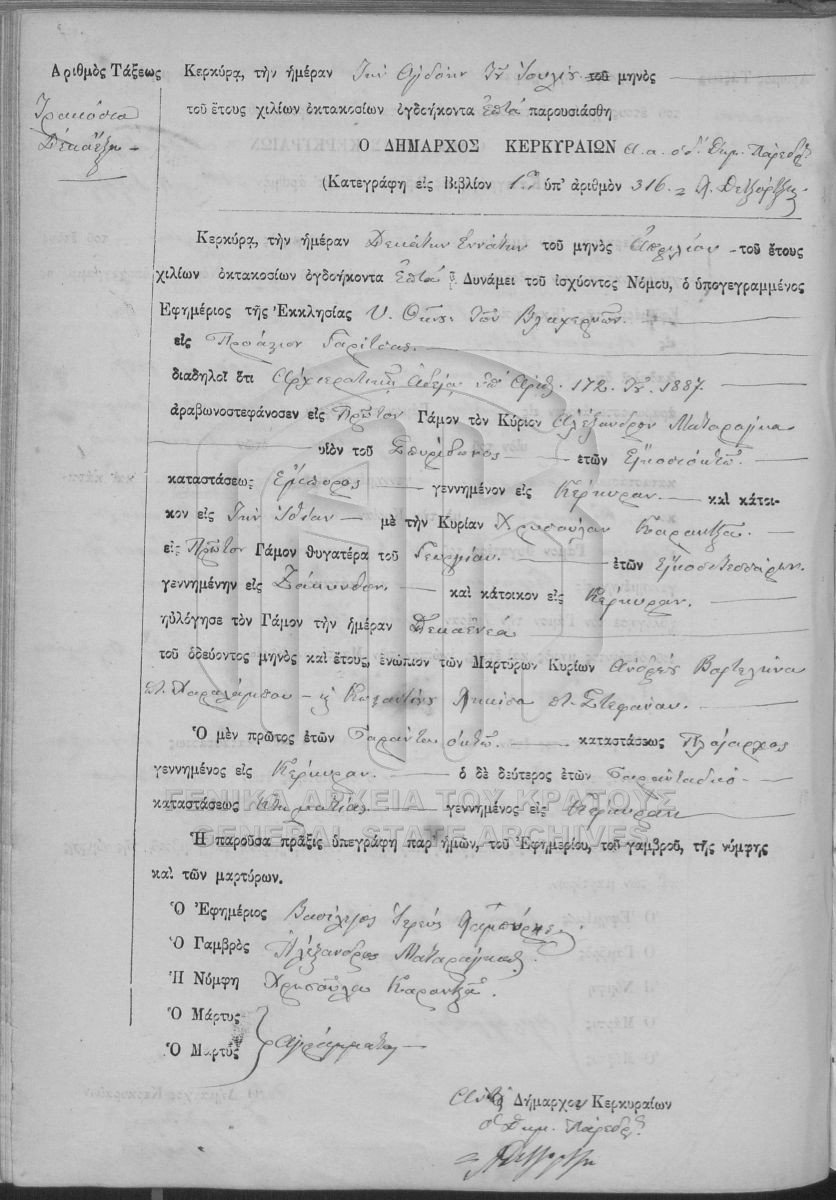 Ἀριθμὸς Τάξεως
Τριακόσια
Δέκα ἕξη
Κερκύρᾳ, τὴν ἡμέραν Τὴν Ὀγδόην Τοῦ Ἰουλίου τοῦ μηνὸς
τοῦ ἔτους χιλίων ὀκτακοσίων ὀγδοήκοντα ἑπτά παρουσιάσθη
Ὁ ΔΗΜΑΡΧΟΣ ΚΕΡΚΥΡΑΙΩΝ Α. α. ὁ δ. Δημ. Πάρεδρ
(Κατεγράφη εἰς Βιβλίον 1ον ὑπ' ἀριθμὸν 316
Κερκύρᾳ, τὴν ἡμέραν Δεκάτην Ἐννάτην τοῦ μηνὸς Ἀπριλίου τοῦ ἔτους
χιλίων ὀκτακοσίων ὀγδοήκοντα ἑπτά Δυνάμει τοῦ ἰσχύοντος Νόμου, ὁ ὑπογεγραμμένος
Ἐφημέριος τῆς Ἐκκλησίας Υ. Θκου Τῶν Βλαχερνῶν
εἰς Προάστιον Γαρίτσας
διαδηλοῖ ὅτι Ἀρχιερατικῇ Ἀδείᾳ ὑπ' Ἀριθ. 172. Τοῦ 1887.
ἀραβωνοστεφάνοσεν εἰς Πρῶτον Γάμον τὸν Κύριον Ἀλέξανδρον Ματαράγκα
υἱὸν τοῦ Σπυρίδωνος ἐτῶν Εἰκοσιοκτώ
καταστάσεως Ἔμπορος γεννημένον εἰς Κέρκυραν καὶ κάτοι-
κον εἰς Τὴν Ἰδίαν μὲ τὴν Κυρίαν Χρυσούλαν Καραντζᾶ
εἰς Πρῶτον Γάμον θυγατέρα τοῦ Γεωργίου ἐτῶν Εἰκοσιτεσσάρων
γεννημένην εἰς Ζάκυνθον καὶ κάτοικον εἰς Κέρκυραν
ηὐλόγησε τὸν Γάμον τὴν ἡμέραν Δεκαεννέα
τοῦ ὁδεύοντος μηνὸς καὶ ἔτους, ἐνώπιον τῶν Μαρτύρων Κυρίων Ἀνδρέου Βορτελίνα
Χαραλάμπου Στεφάνου
Ὁ μὲν πρῶτος ἐτῶν Σαράντα ὀκτώ καταστάσεως Πλοίαρχος
γεννημένος εἰς Κέρκυραν ὁ δὲ δεύτερος ἐτῶν Σαρανταδιό
καταστάσεως Κτηματίας γεννημένος εἰς Κέρκυραν
ΓΕΝΙΚΑ ΑΡΧΕΙΑ ΤΟΥ ΚΡΑΤΟΥΣ
GENERAL STATE ARCHIVES
Ἡ παροῦσα πρᾶξις ὑπεγράφη παρ' ἡμῶν, τοῦ Ἐφημερίου, τοῦ γαμβροῦ, τῆς νύμφης
καὶ τῶν μαρτύρων.
Ὁ Ἐφημέριος Βασίλειος Ἱερεύς
Ὁ Γαμβρὸς Ἀλέξανδρος Ματαράγκας
Ἡ Νύμφη Χρυσούλα Καραντζᾶ
Ὁ Μάρτυς
Ὁ Μάρτυς Ἀγράμματοι
Δήμαρχον Κερκυραίων
ὁ Δημ. Πάρεδρ